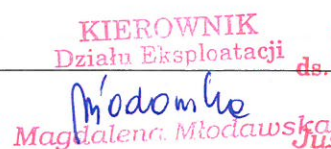 KIEROWNIK
Działu Eksploatacji
ds.
Magdalena Młodawska